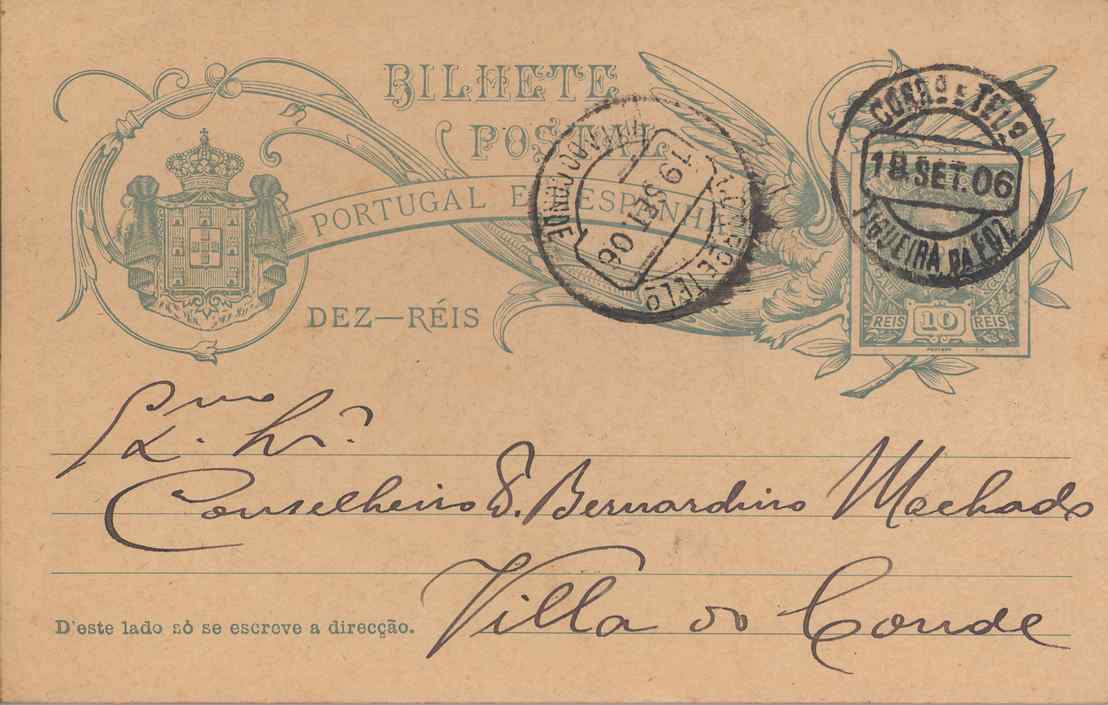 BILHETE
POSTAL
PORTUGAL E HESPANHA
DEZ—RÉIS
CORRO E TELO
18 SET. 06
FIGUEIRA DA FOZ
CORRO E TELO
19 SET 06
VILLA DO CONDE
REIS 10 REIS
Exmo. Sr.
Conselheiro D. Bernardino Machado
Villa do Conde
D'este lado só se escreve a direcção.